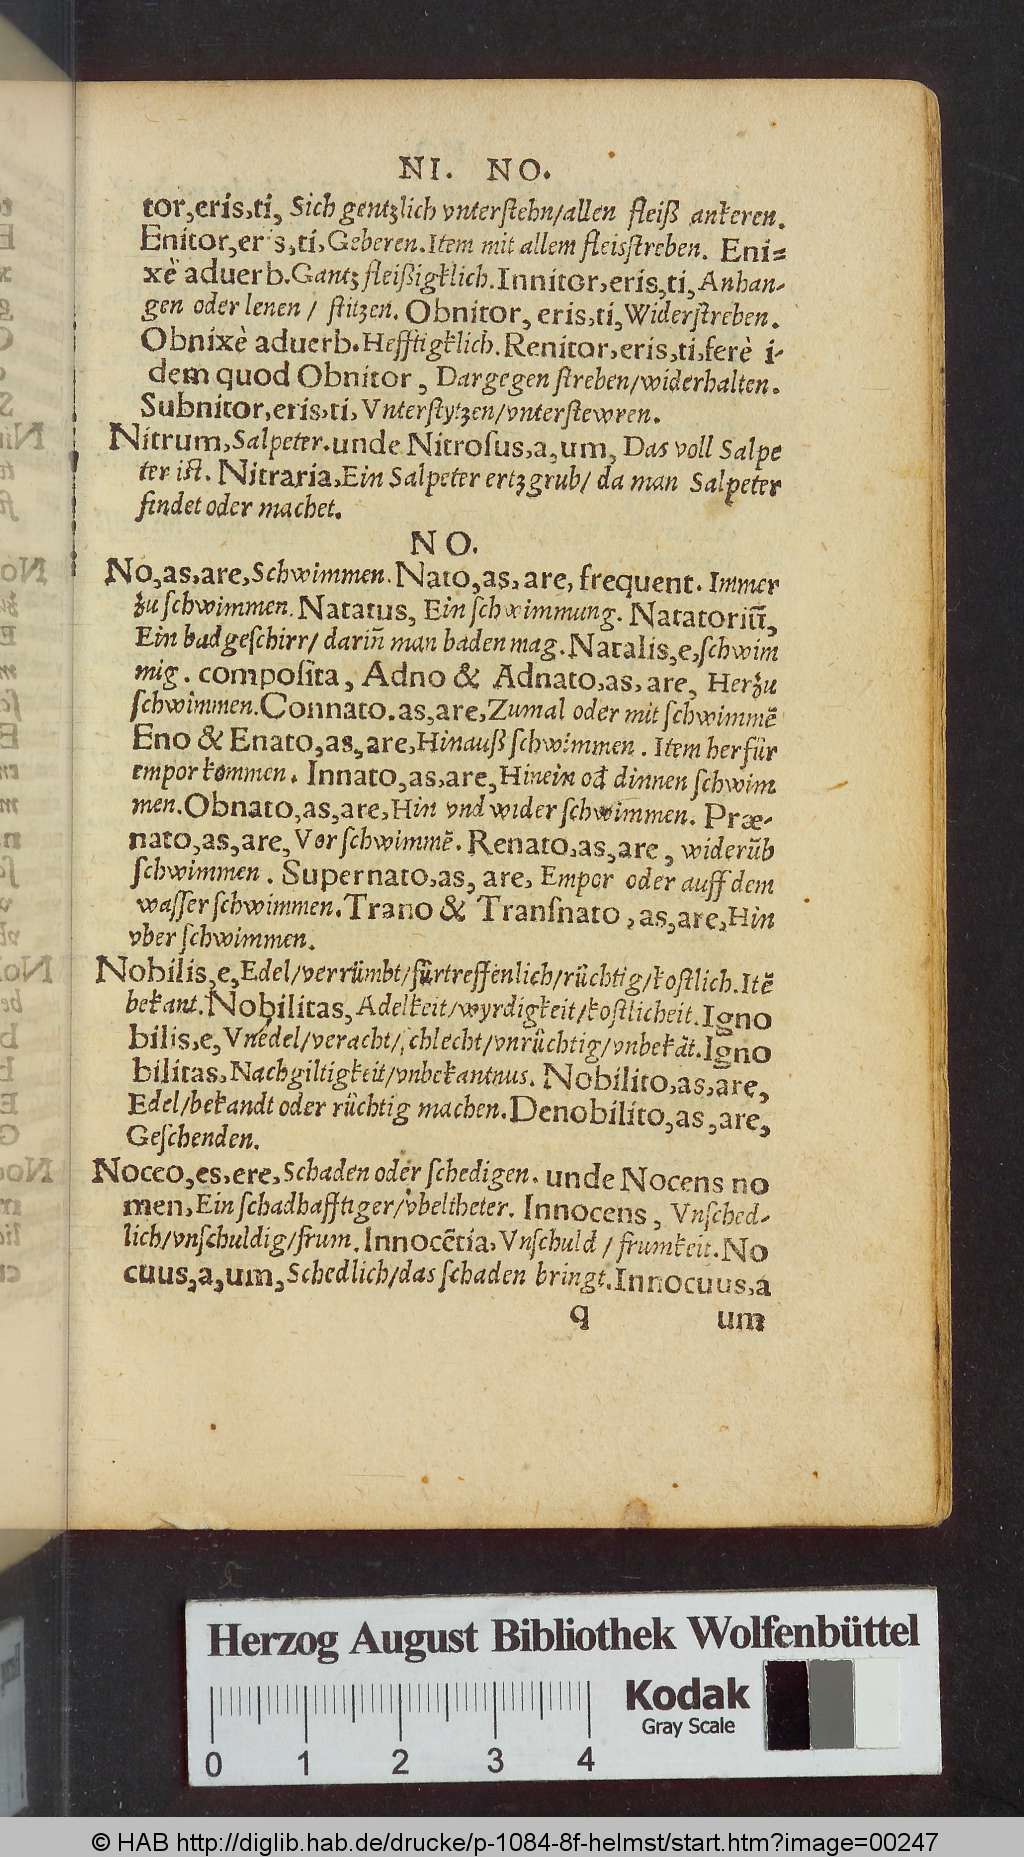 NI. NO.
tor,eris,ti, Sich gentzlich vnterstehn/allen fleiß ankeren.
Enitor,eris,ti,Geberen.Item mit allem fleisstreben. Eni=
xè aduerb.Gantz fleißigklich.Innitor,eris,ti,Anhan-
gen oder lenen / stitzen. Obnitor, eris,ti,Widerstreben.
Obnixè aduerb.Hefftigklich.Renitor,eris,ti,ferè i-
dem quod Obnitor, Dargegen streben/widerhalten.
Subnitor,eris,ti, Vnterstytzen/vnterstewren.
Nitrum,Salpeter.unde Nitroſus,a,um, Das voll Salpe
ter ist. Nitraria,Ein Salpeter ertzgrub/ da man Salpeter
findet oder machet.
NO.
No,as,are,Schwimmen.Nato,as,are, frequent. Immer
zu schwimmen. Natatus, Ein schwimmung. Natatoriũ,
Ein badgeschirr/ dariñ man baden mag.Natalis,e,schwim
mig. compoſita, Adno & Adnato,as,are, Herzu
schwimmen.Connato.as,are,Zumal oder mit schwimmẽ
Eno & Enato,as,are,Hinauß schwimmen. Item herfür
empor kommen. Innato,as,are,Hinein od dinnen schwim
men.Obnato,as,are,Hin vnd wider schwimmen. Præ-
nato,as,are,Vor schwimmẽ. Renato,as,are, widerũb
schwimmen. Supernato,as,are, Empor oder auff dem
wasser schwimmen.Trano & Tranſnato,as,are,Hin
vber schwimmen.
Nobilis,e,Edel/verrümbt/fürtreffenlich/rüchtig/kostlich.Itẽ
bekant.Nobilitas,Adelkeit/wyrdigkeit/kostlicheit.Igno
bilis,e,Vnedel/veracht/schlecht/vnrüchtig/vnbekãt.Igno
bilitas,Nachgiltigkeit/vnbekantnus. Nobilito,as,are,
Edel/bekandt oder rüchtig machen.Denobilito,as,are,
Geschenden.
Noceo,es,ere,Schaden oder schedigen. unde Nocens no
men,Ein schadhafftiger/vbeltheter. Innocens, Vnsched-
lich/vnschuldig/frum.Innocẽtia,Vnschuld / frumkeit.No
cuus,a,um,Schedlich/das schaden bringt.Innocuus,a
q um
Herzog August Bibliothek Wolfenbüttel
Kodak
Gray Scale
0 1 2 3 4
© HAB http://diglib.hab.de/drucke/p-1084-8f-helmst/start.htm?image=00247